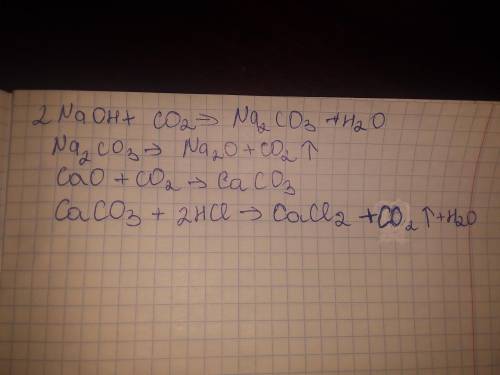 2NaOH + CO₂ → Na₂CO₃ + H₂O
Na₂CO₃ → Na₂O + CO₂ ↑
CaO + CO₂ → CaCO₃
CaCO₃ + 2HCl → CaCl₂ + CO₂ ↑ + H₂O